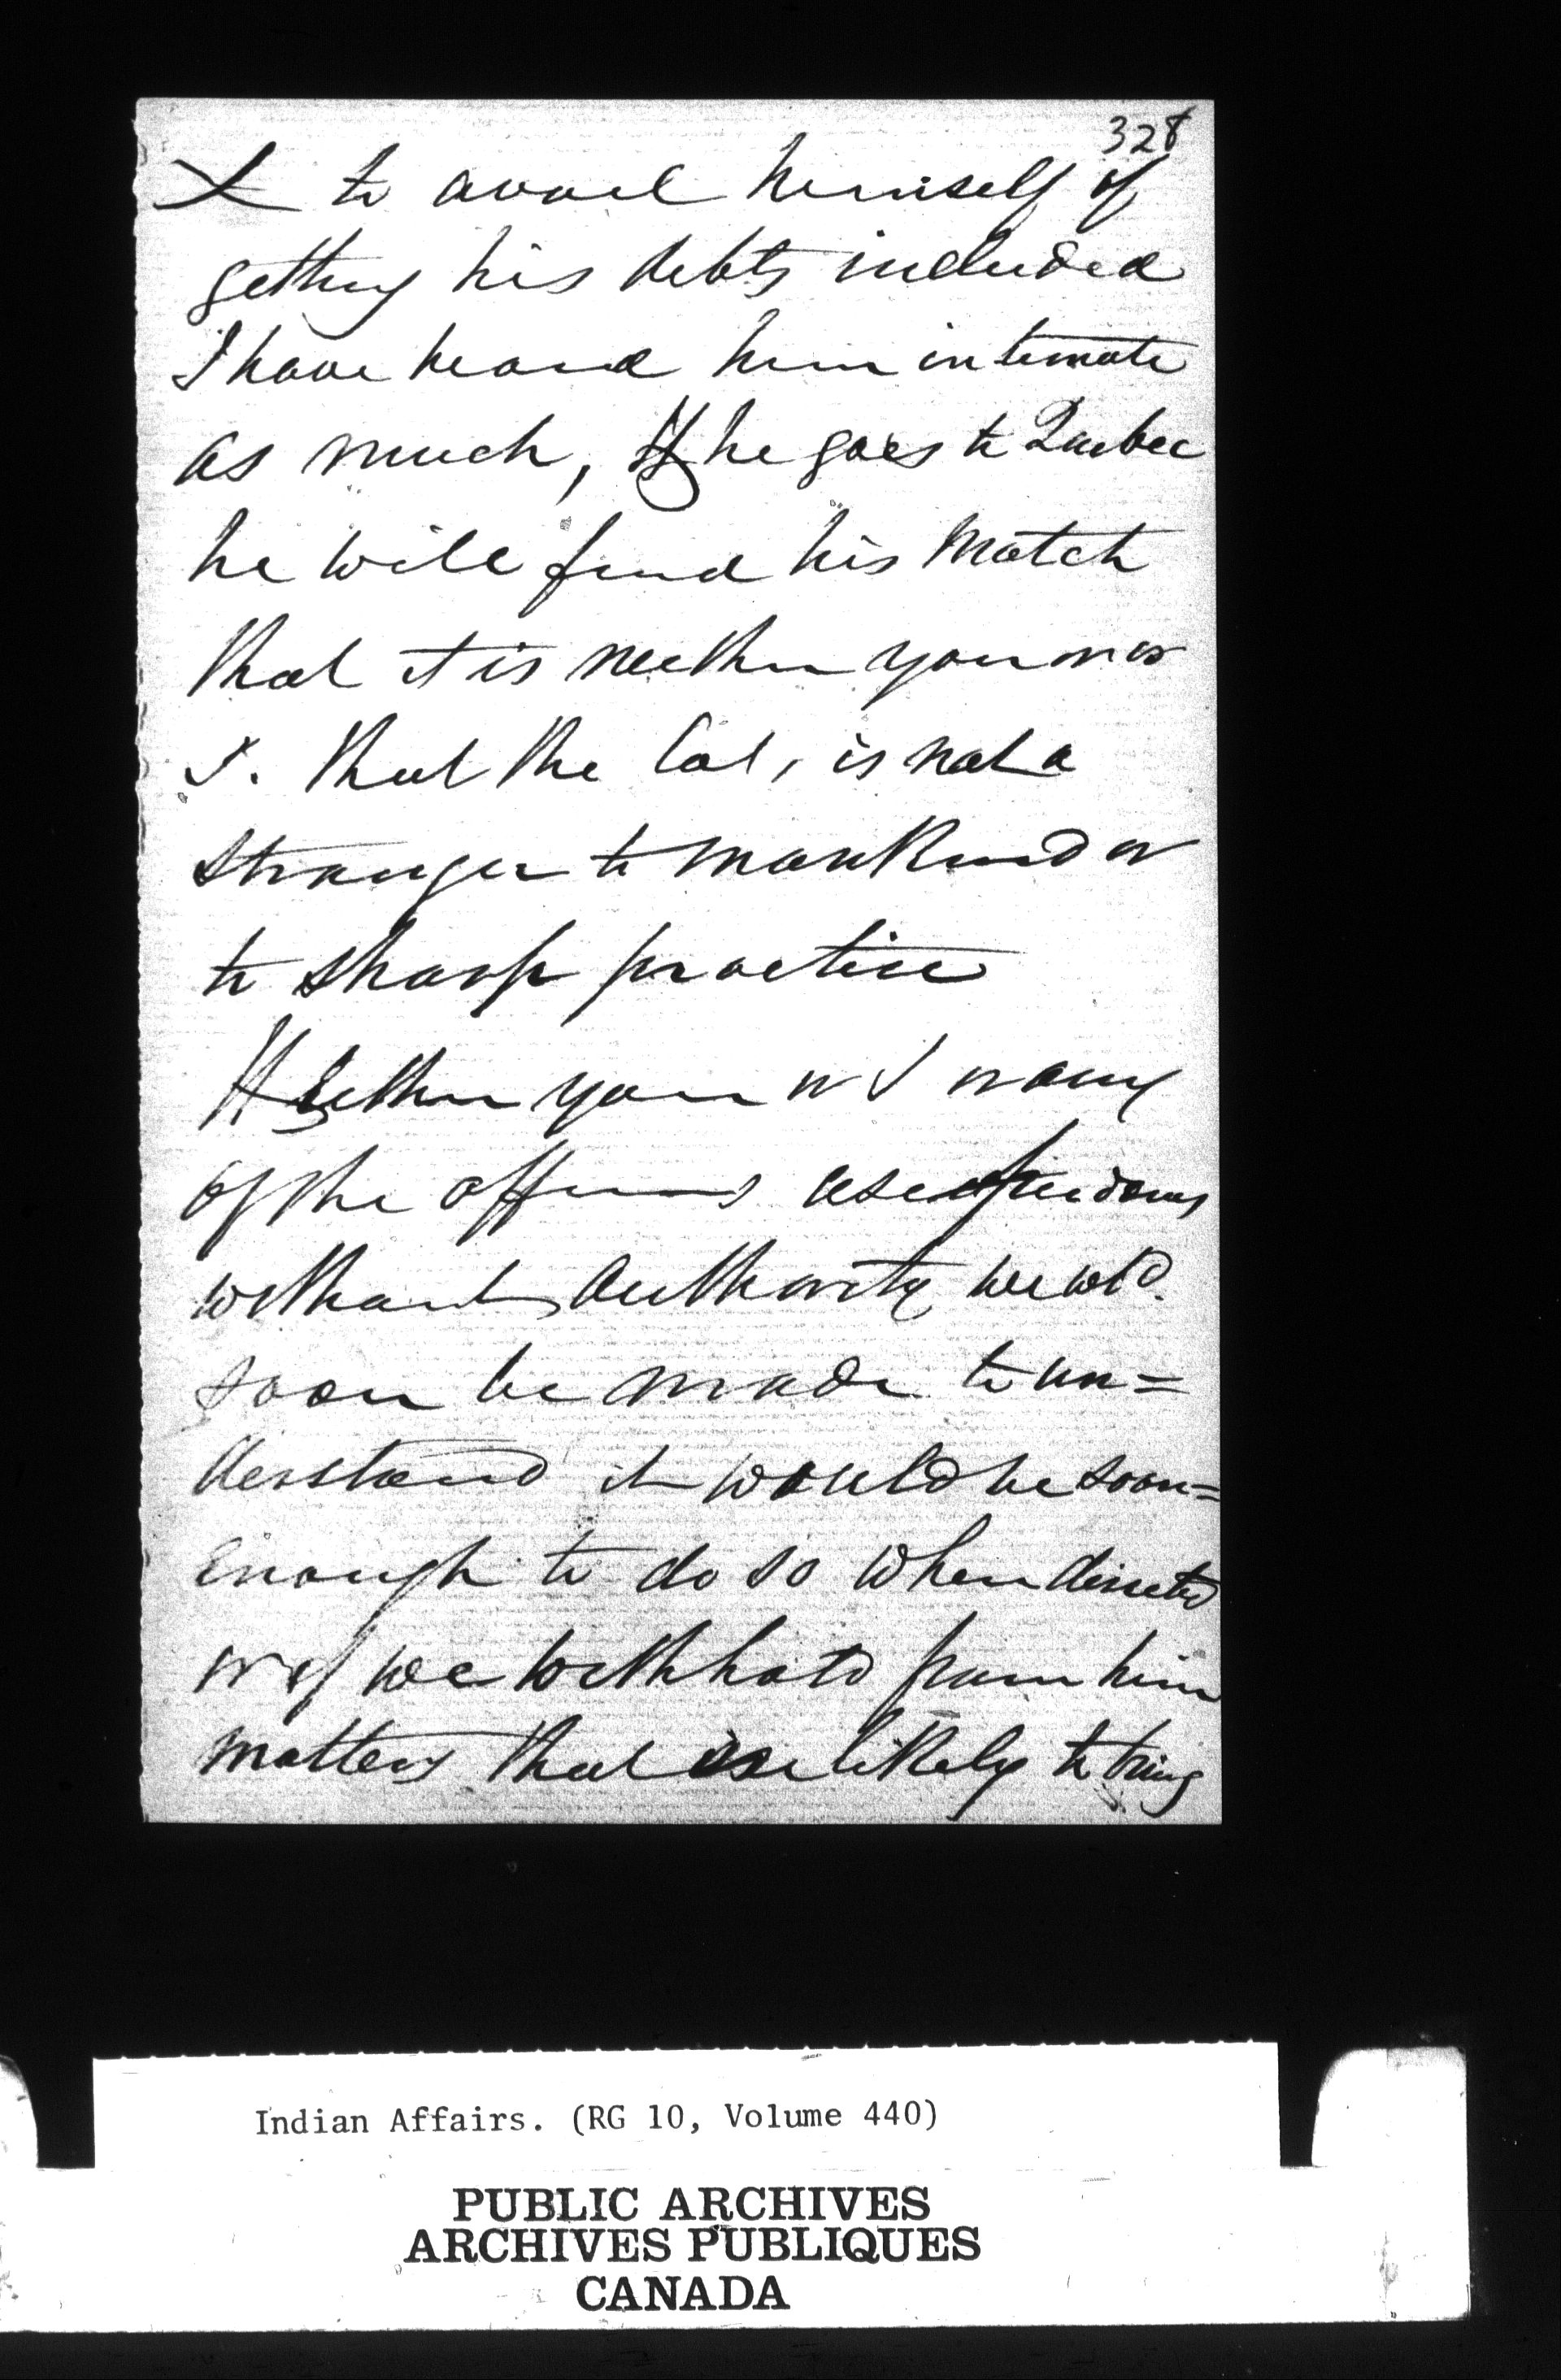 328
& to avail himself of
getting his debts included
I have heard him intimate
as much, If he goes to Quebec
he will find his match
that it is neither you nor
I. that the Col, is not a
stranger to mankind or
to sharp practice
If either you or I or any
of the officers use freedoms
without Authority we wld.
soon be made to un=
derstand it would be soon=
enough to do so when directed
or if we withhold from him
matters that is likely to bring
Indian Affairs. (RG 10, Volume 440)
PUBLIC ARCHIVES
ARCHIVES PUBLIQUES
CANADA